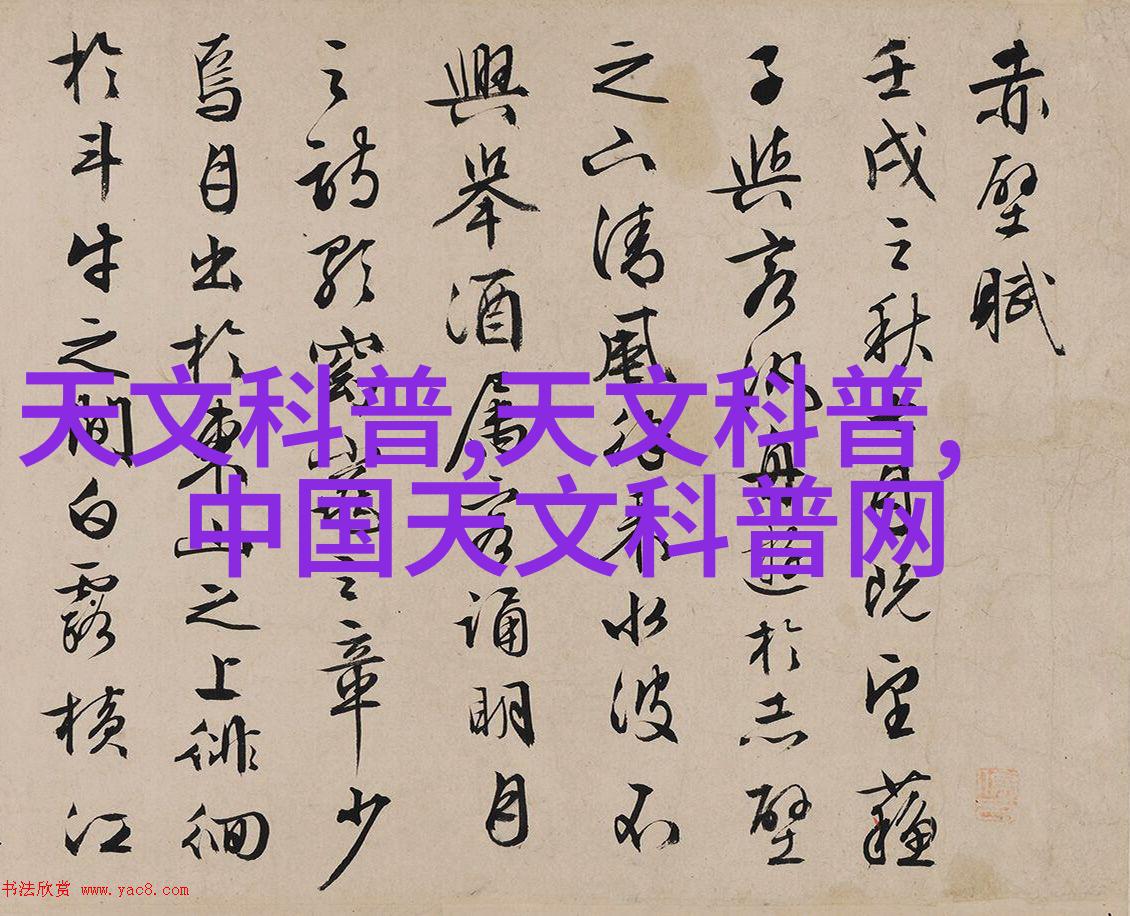 赤壁賦
壬戌之秋七月既望蘇
子與客汎舟遊於赤壁
之下清風徐來水波不
興舉酒屬客誦明月
之詩歌窈窕之章少
焉月出於東山之上徘徊
於斗牛之間白露橫江
天文科普,天文科普,
中国天文科普网
书法欣赏 www.yac8.com